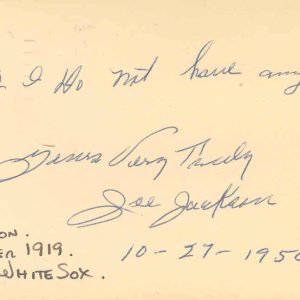 I Do Not have any
Yours Very Truly
Joe Jackson
ON.
ER 1919.
WHITE SOX.
10-27-1950